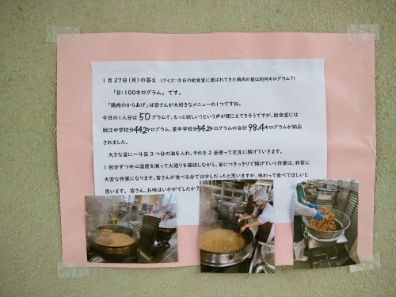 1月27日(月)の答え (クイズ:今日の給食室に運ばれてきた鶏肉の量は約何キログラム?)
「B:100キログラム」 です。
「鶏肉のからあげ」は皆さんが大好きなメニューの1つですね。
今日の1人分は50グラムで、もっと欲しい!という声が聞こえてきそうですが、給食室には
狛江中学校分44.2キログラム、東中学校分54.2キログラムの合計98.4キログラムが納品
されました。
大きな釜に一斗缶3つ分の油を入れ、それを2釜使って交互に揚げていきます。
1回分ずつ中心温度を測って火通りを確認しながら、釜につきっきりで揚げていく作業は、非常に
大変な作業になります。皆さんが食べる分では少しだったと思いますが、味わって食べてほしいと
思います。 皆さん、お味はいかがでしたか?